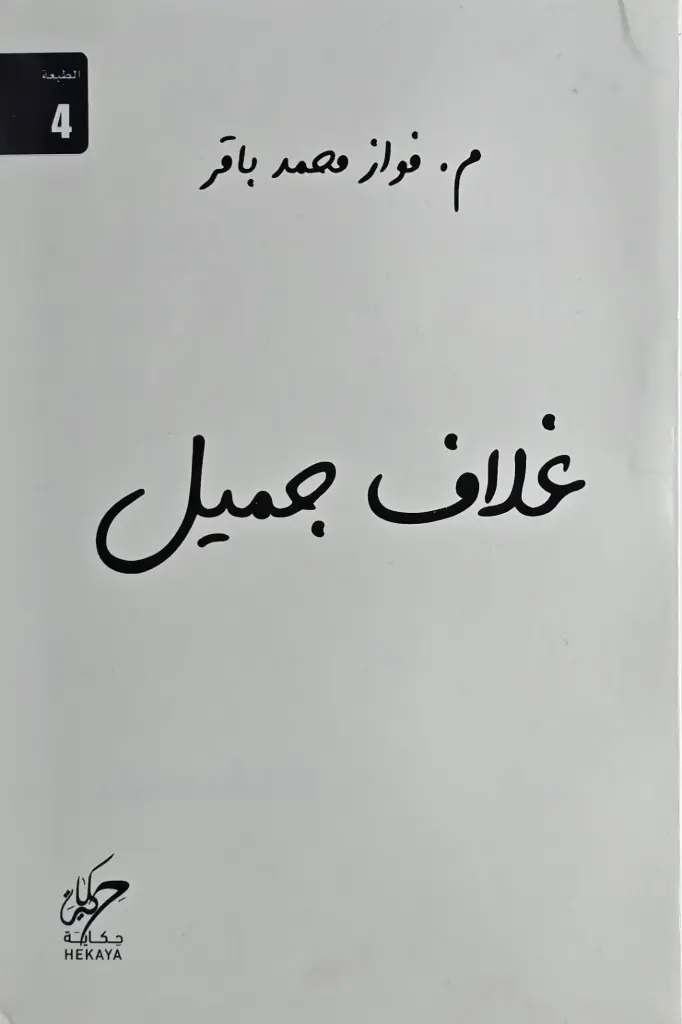 الطبعة
4
م. فواز محمد باقر
غلاف جميل
حكاية
حكاية
HEKAYA